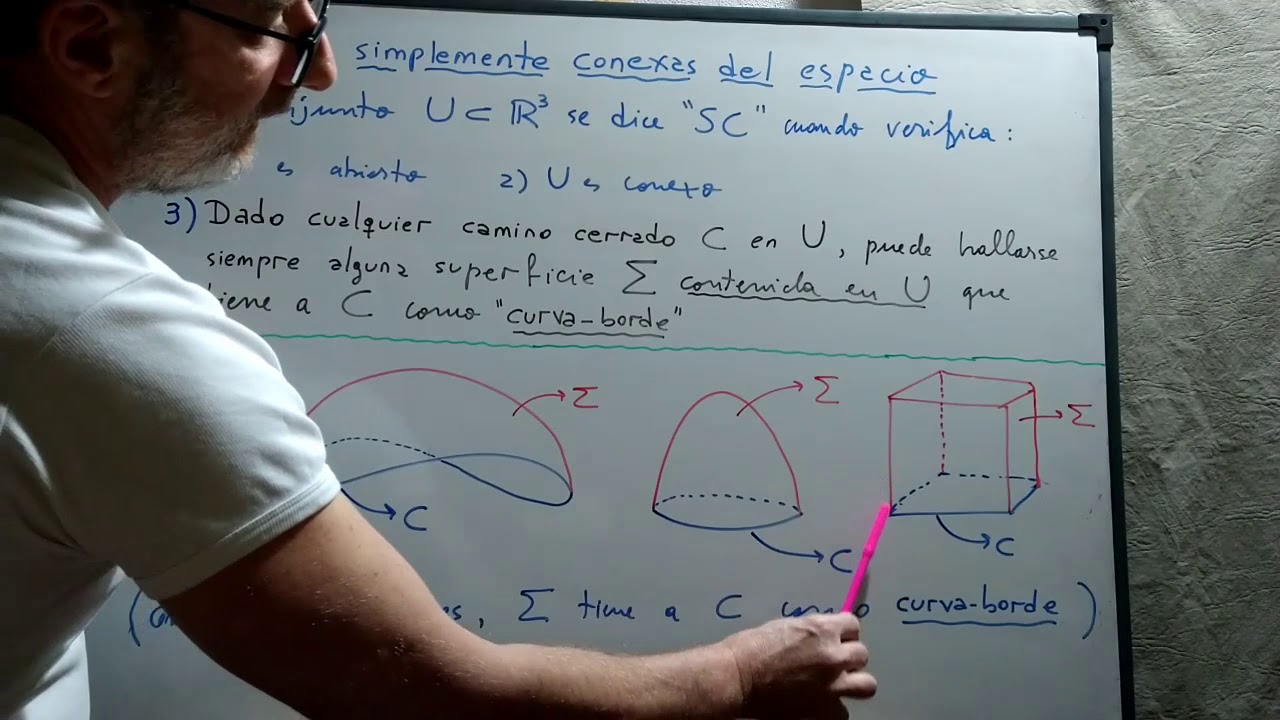 simplemente conexas del espacio
junto U ⊂ ℝ³ se dice "SC" cuando verifica:
es abierto 2) U es conexo
3) Dado cualquier camino cerrado C en U, puede hallarse
siempre alguna superficie Σ contenida en U que
tiene a C como "curva-borde"
Σ Σ Σ
C C C
, Σ tiene a C como curva-borde)